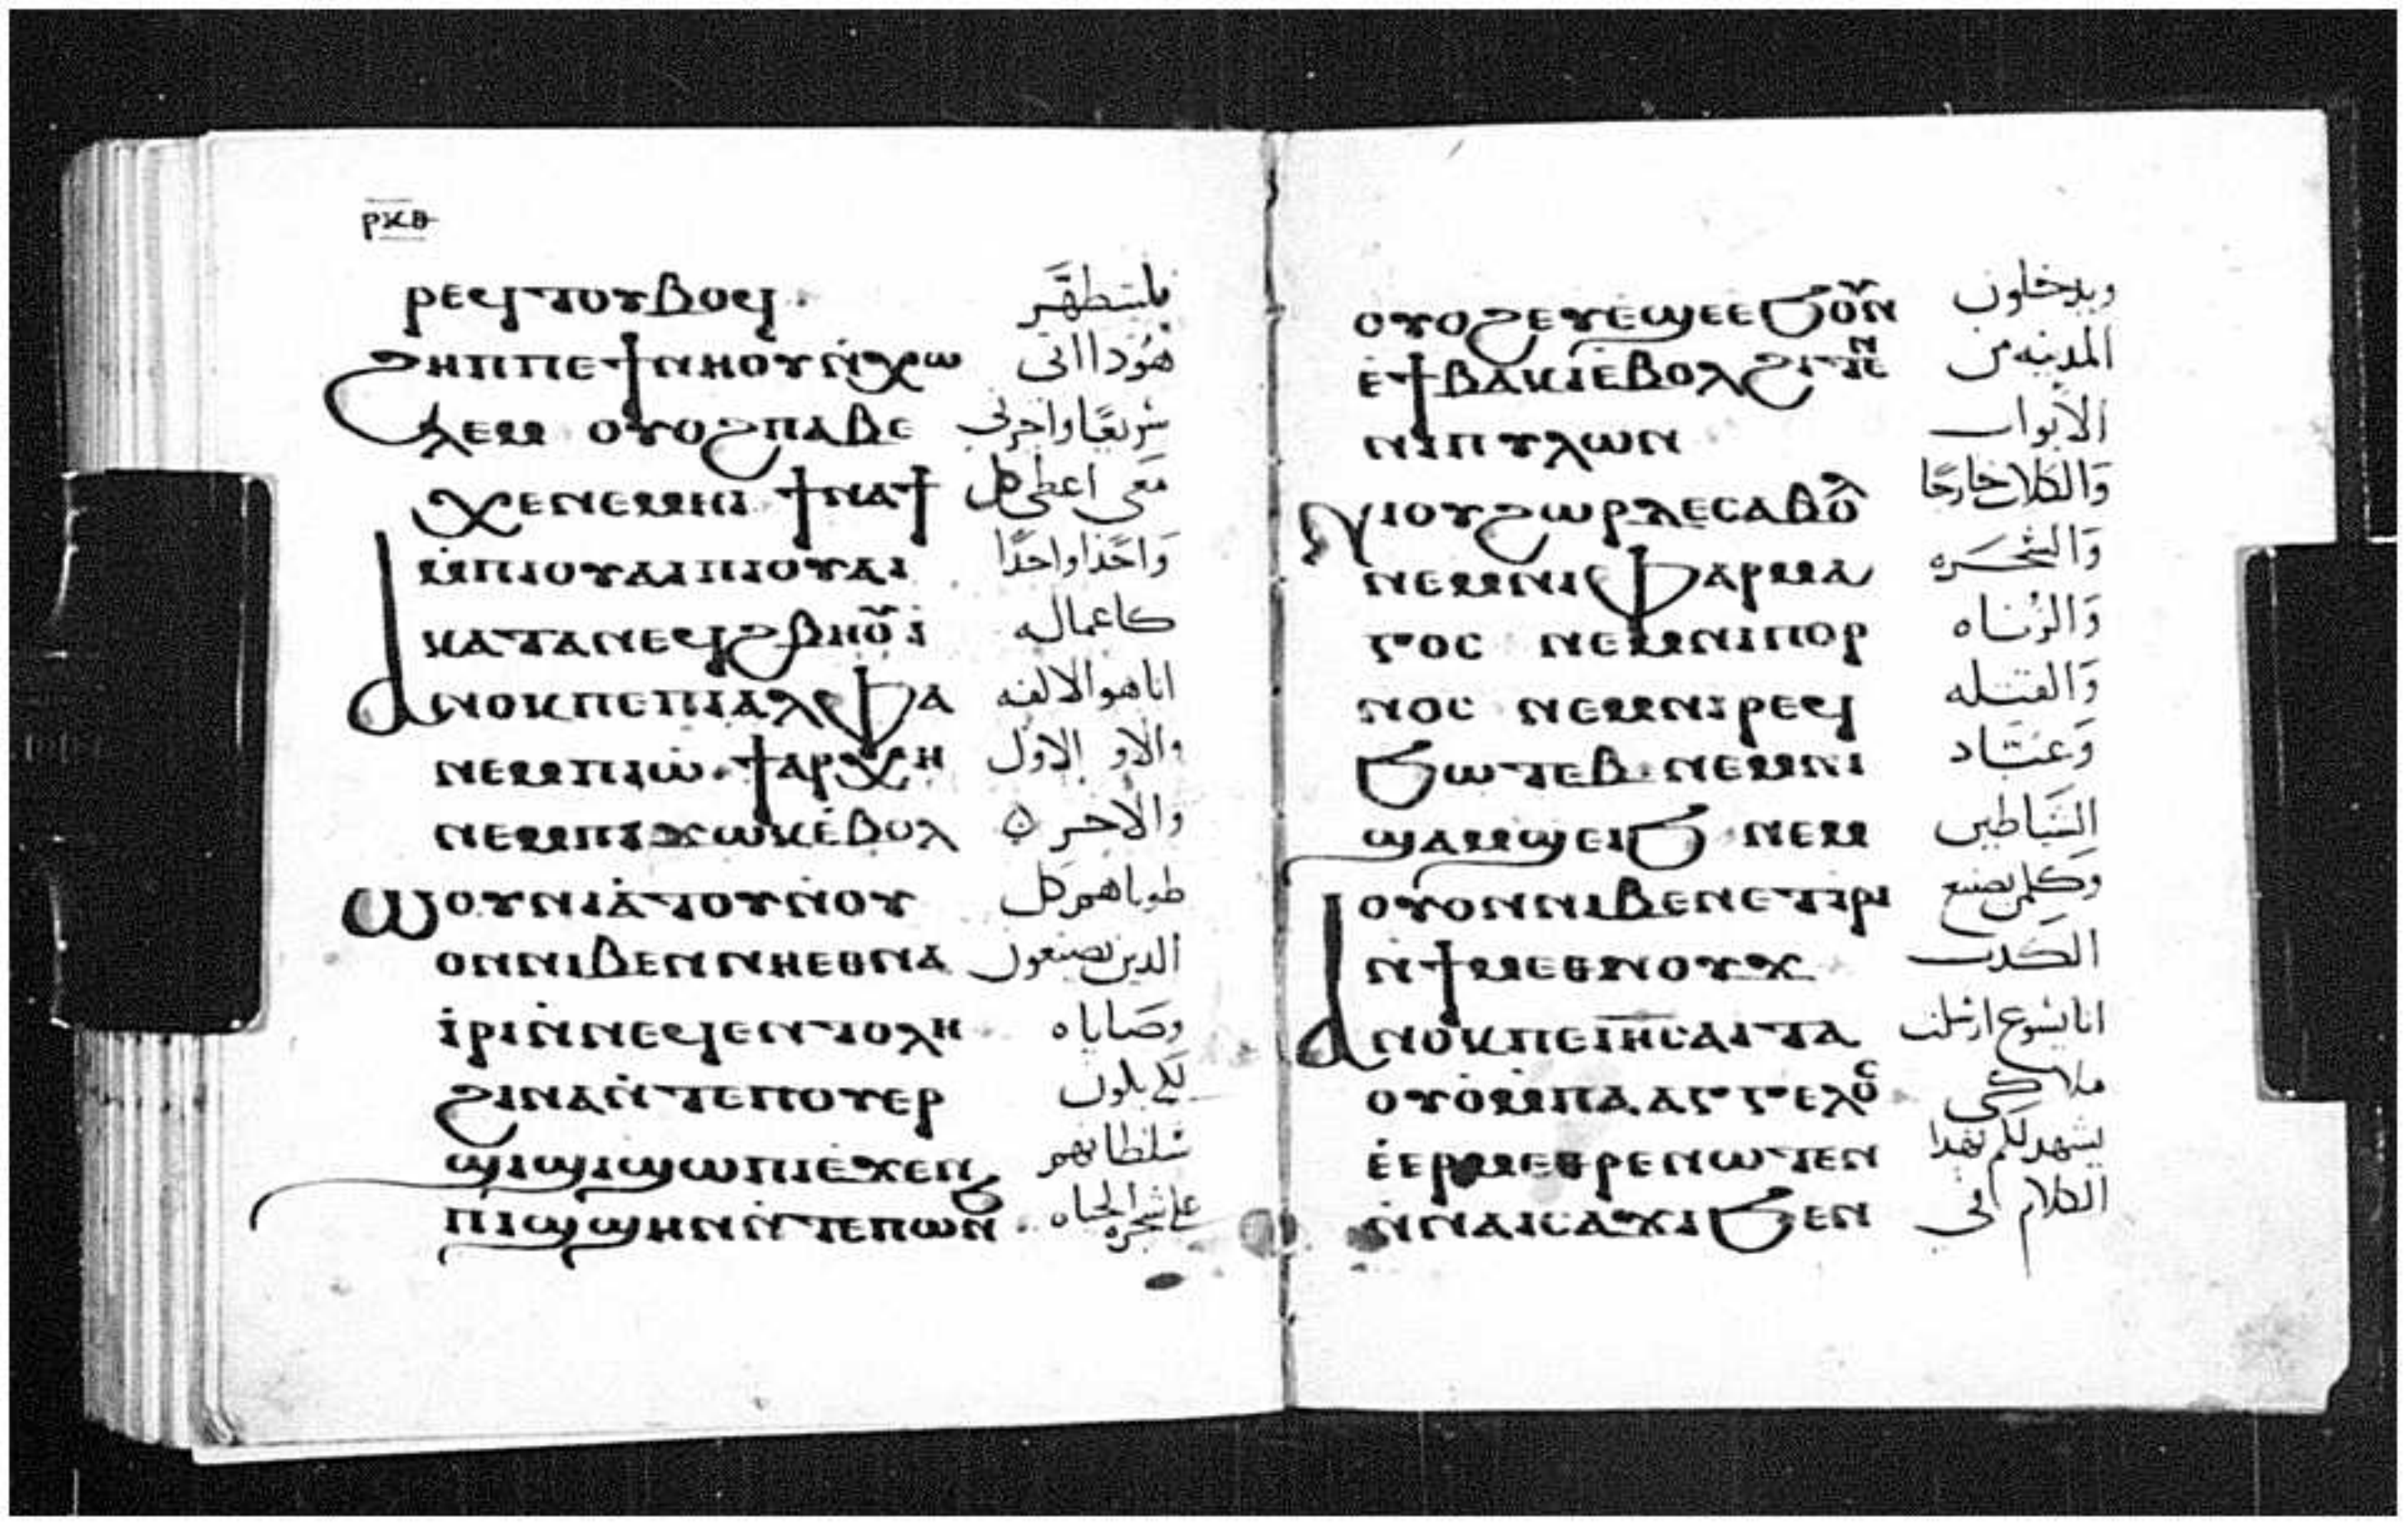 ⲣⲕⲑ
ⲣⲉϥⲧⲟⲩⲃⲟϥ. فليتطهر
ϩⲏⲡⲡⲉ ϯⲛⲏⲟⲩ ⲛ̇ⲭⲱ هوذا اتى
ⲗⲉⲙ ⲟⲩⲟϩ ⲡⲁⲃⲉ سريعًا واجرتى
ⲭⲉ ⲛⲉⲙⲏⲓ ϯⲛⲁϯ معى اعطى كل
ⲙ̇ⲡⲓⲟⲩⲁⲓ ⲡⲓⲟⲩⲁⲓ واحدًا واحدًا
ⲕⲁⲧⲁ ⲛⲉϥϩⲃⲏⲟⲩ̈ⲓ كاعماله
ⲁⲛⲟⲕ ⲡⲉ ⲡⲓⲁⲗⲫⲁ انا هو الالفه
ⲛⲉⲙ ⲡⲓⲱ̇. ϯⲁⲣⲭⲏ والاو الاول
ⲛⲉⲙ ⲡⲓϫⲱⲕ ⲉ̇ⲃⲟⲗ والاخر ٥
ⲱⲟⲩⲛⲓⲁ̇ⲧⲟⲩ ⲛ̇ⲟⲩ طوباهم كل
ⲟⲛ ⲛⲓⲃⲉⲛ ⲛⲏⲉⲑⲛⲁ الدين يصنعون
ⲓ̇ⲣⲓ ⲛ̇ⲛⲉϥⲉⲛⲧⲟⲗⲏ وصاياه
ϩⲓⲛⲁ ⲛ̇ⲧⲉ ⲡⲟⲩⲉⲣ لكى يكون
ϣⲓϣⲓ ϣⲱⲡⲓ ⲉ̇ϫⲉⲛ سلطانهم
ⲡⲓϣϣⲏⲛ ⲛ̇ⲧⲉ ⲡⲱⲛϧ على شجرة الحياه
ⲟⲩⲟϩ ⲉⲩⲉ̇ϣⲉ ⲉϧⲟⲩⲛ ويدخلون
ⲉ̇ϯⲃⲁⲕⲓ ⲉ̇ⲃⲟⲗ ϩⲓⲧⲉⲛ المدينه من
ⲛⲓⲡⲩⲗⲱⲛ الابواب
ⲛⲓⲟⲩϩⲱⲣ ⲗⲉ ⲥⲁⲃⲟⲗ والكلاب خارجًا
ⲛⲉⲙ ⲛⲓⲫⲁⲣⲙⲁ والسحره
ⲅⲟⲥ ⲛⲉⲙ ⲛⲓⲡⲟⲣ والزناه
ⲛⲟⲥ ⲛⲉⲙ ⲛⲓⲣⲉϥ والقتله
ϧⲱⲧⲉⲃ ⲛⲉⲙ ⲛⲓ وعبّاد
ϣⲁⲙϣⲉⲓϧ ⲛⲉⲙ الشياطين
ⲟⲩⲟⲛ ⲛⲓⲃⲉⲛ ⲉⲧⲓⲣⲓ وكلمن يصنع
ⲛ̇ϯⲙⲉⲑⲛⲟⲩϫ الكدب
ⲁⲛⲟⲕ ⲡⲉ ⲓⲏⲥ ⲁⲓⲧⲁ انا يسوع ارسلت
ⲟⲩⲟ̇ ⲙ̇ⲡⲁⲁⲅⲅⲉⲗⲟⲥ ملاكى
ⲉ̇ⲉⲣⲙⲉⲑⲣⲉ ⲛⲱⲧⲉⲛ يشهد لكم بهدا
ⲛ̇ⲛⲁⲓⲥⲁϫⲓ ϧⲉⲛ الكلام فى